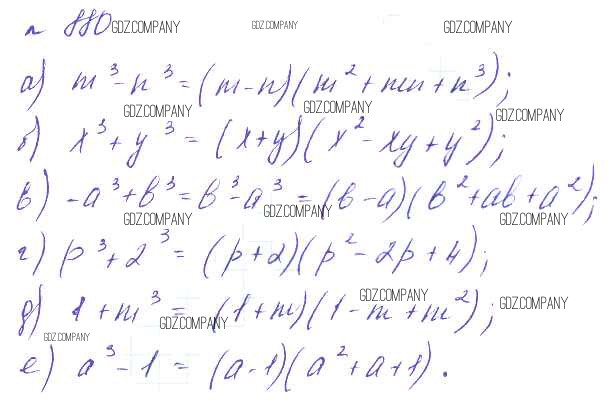 № 880 GDZ.COMPANY GDZ.COMPANY GDZ.COMPANY
а) m³-n³=(m-n)(m²+mn+n³);
GDZ.COMPANY GDZ.COMPANY GDZ.COMPANY
б) x³+y³=(x+y)(x²-xy+y²);
в) -a³+b³=b³-a³=(b-a)(b²+ab+a²);
GDZ.COMPANY GDZ.COMPANY GDZ.COMPANY
г) p³+2³=(p+2)(p²-2p+4);
д) 1+m³=(1+m)(1-m+m²);
GDZ.COMPANY GDZ.COMPANY GDZ.COMPANY
GDZ.COMPANY
е) a³-1=(a-1)(a²+a+1).